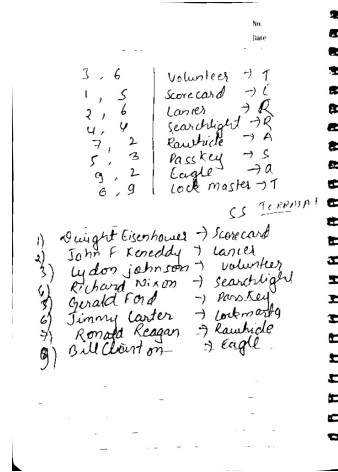 No
Date
3 , 6 | Volunteer → T
1 , 5 | Scorecard → C
2 , 6 | Lancer → R
4 , 4 | Searchlight → R
7 , 2 | Rawhide → A
5 , 3 | Passkey → S
9 , 2 | Eagle → a
6 , 9 | Lock master → T
SS
1) Dwight Eisenhower → Scorecard
2) John F Keneddy → Lancer
3) Lydon johnson → Volunteer
4) Richard Nixon → Searchlight
5) Gerald Ford → Passkey
6) Jimmy Carter → Lockmasta
7) Ronald Reagan → Rawhide
9) Bill Clinton → Eagle